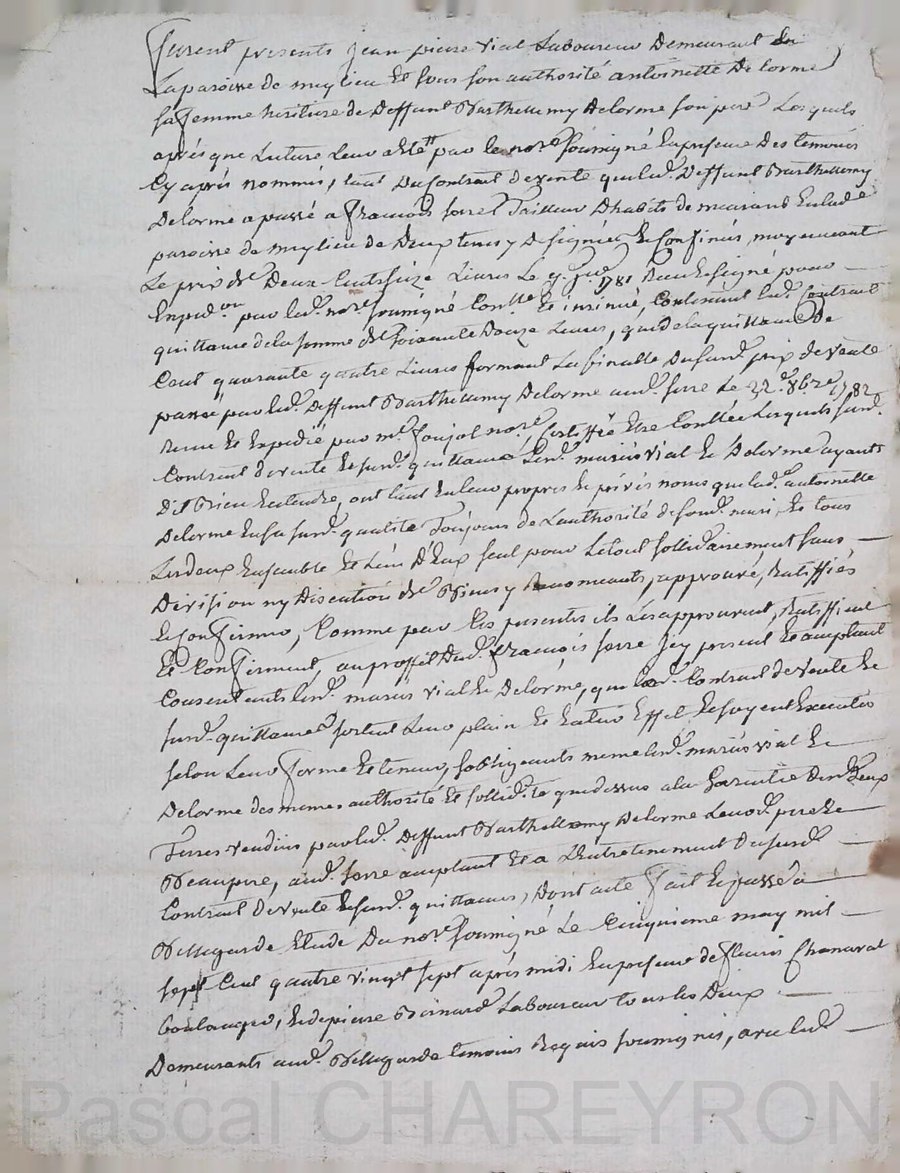 furent presents jean pierre vial Laboureur Demeurant en
La paroisse de meylieu et sous son authorité antoinette Delorme
sa femme heritiere de Deffunt Barthellemy Delorme son pere Lesquels
après que Lecture Leur a été par le no.re soussigné En presence Des temoins
Cy après nommés, tant Du Contract de vente que led. Deffunt Barthellemy
Delorme a passé a francois ferre Tailleur D'habits de meirand En lad.
paroisse de meylieu de Deux terres y Designées et Confinées, moyennant
Le prix de Deux Cent seize Livres Le 9 1781 signé pour
Exped.on par led. no.re soussigné Contlé et insinué, Contenant led. Contract
quittance de la somme de soixante Douze Livres, que de la quittance de
Cent quarante quatre Livres formant La finalle Dususd. prix de vente
passé par led. Deffunt Barthellemy Delorme aud. ferre Le 22.e 8b.re 1782
Reçue et Expedié par m.e no.re, Certiffié Etre Contlée Lesquels susd.
Contract de vente et susd. quittance Lesd. mariés vial et Delorme ayants
Dit Bien Entendre, ont tant En Leur propres et privés noms que lad. antoinette
Delorme En sa susd. qualité Toujours de L'authorité de sond. mari, et tous
Les deux Ensemble et L'un D'Eux seul pour Le tout sollidairement sans —
Division ny Discution de Biens y Renonceants, approuvé, Ratiffiés
et Confirmés, Comme par Les presentes ils Les approuvent, Ratiffient
Et Confirment, au proffit Dud. francois ferre icy present et acceptant
Consentants Lesd. mariés vial et Delorme, que led. Contract de vente et
susd. quittance sortent Leur plain et Entier Effet, et soyent Executés
selon Leur forme et teneur, s'obligeants meme lesd. mariés vial et
Delorme des memes authorité et sollid.té que dessus a la Garentie Desd. Deux
Terres vendües par led. Deffunt Barthellemy Delorme Leurd. pere et
Beaupere, aud. ferre acceptant et a L'entretenement Dususd.
Contract de vente et susd. quittance, Dont acte fait et passé a
Bellegarde Etude Du no.re soussigné Le Cinquieme may mil —
sept Cent quatre vingt sept après midi En presence de fleuris Chanavat
boulanger, et de pierre Bernard Laboureur tous les Deux —
Demeurants aud. Bellegarde temoins Requis soussignés, avec led. —
Pascal CHAREYRON